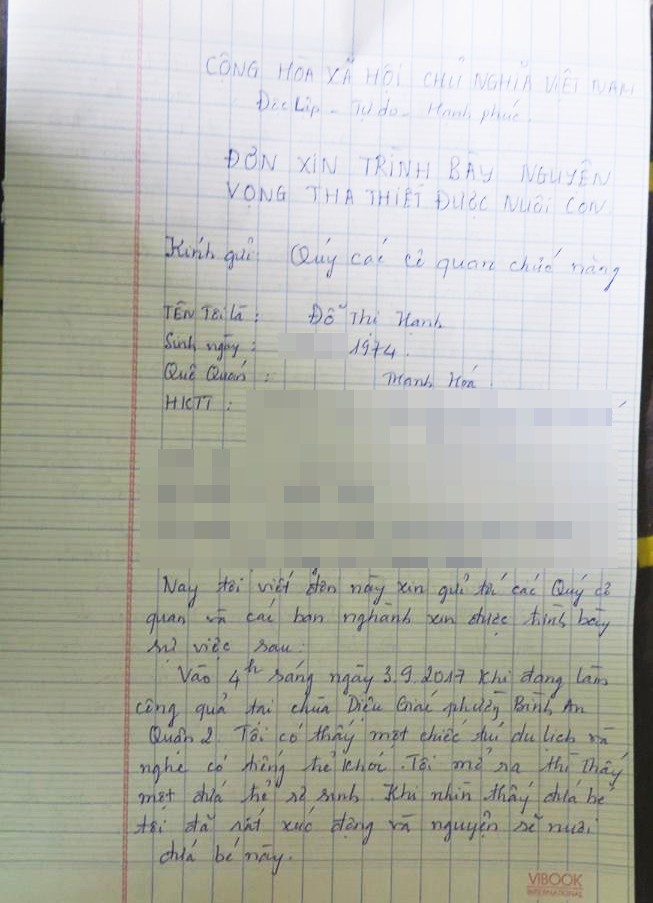 CỘNG HÒA XÃ HỘI CHỦ NGHĨA VIỆT NAM
Độc Lập - Tự do - Hạnh phúc
ĐƠN XIN TRÌNH BÀY NGUYỆN
VỌNG THA THIẾT ĐƯỢC NUÔI CON
Kính gửi: Quý các cơ quan chức năng
TÊN Tôi là : Đỗ Thị Hạnh
Sinh ngày : 1974.
Quê Quán : Thanh Hoá
HKTT :
Nay tôi viết đơn này xin gửi tới các Quý cơ
quan và các ban nghành xin được trình bày
sự việc sau:
Vào 4h sáng ngày 3.9.2017 Khi đang làm
công quả tại chùa Diệu Giác phường Bình An
Quận 2. Tôi có thấy một chiếc túi du lịch và
nghe có tiếng trẻ khóc. Tôi mở ra thì thấy
một đứa trẻ sơ sinh. Khi nhìn thấy đứa bé
tôi đã rất xúc động và nguyện sẽ nuôi
đứa bé này.
VIBOOK
INTERNATIONAL